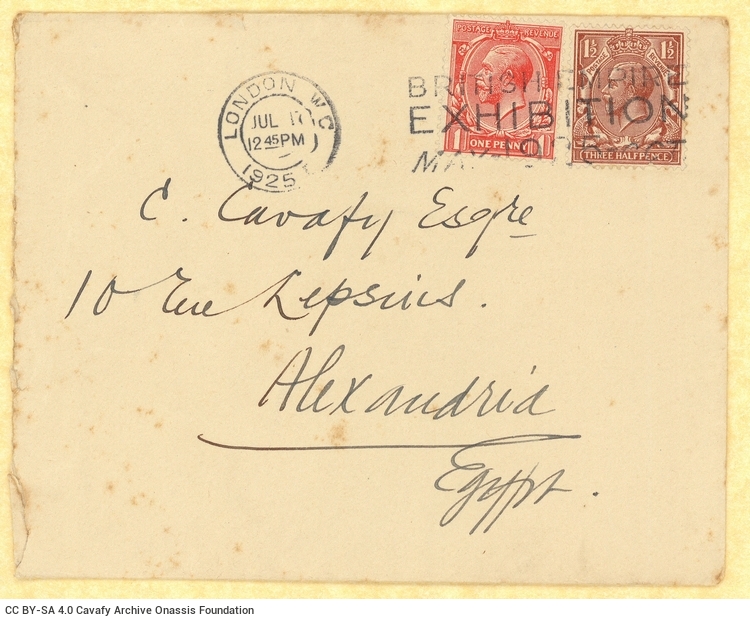 LONDON W.C.
JUL
12 45 PM
1925
POSTAGE REVENUE
1 ONE PENNY 1
1½ 1½
POSTAGE REVENUE
THREE HALFPENCE
BRITISH EMPIRE
EXHIBITION
C. Cavafy Esqre
10 Rue Lepsius.
Alexandria
Egypt.
CC BY-SA 4.0 Cavafy Archive Onassis Foundation